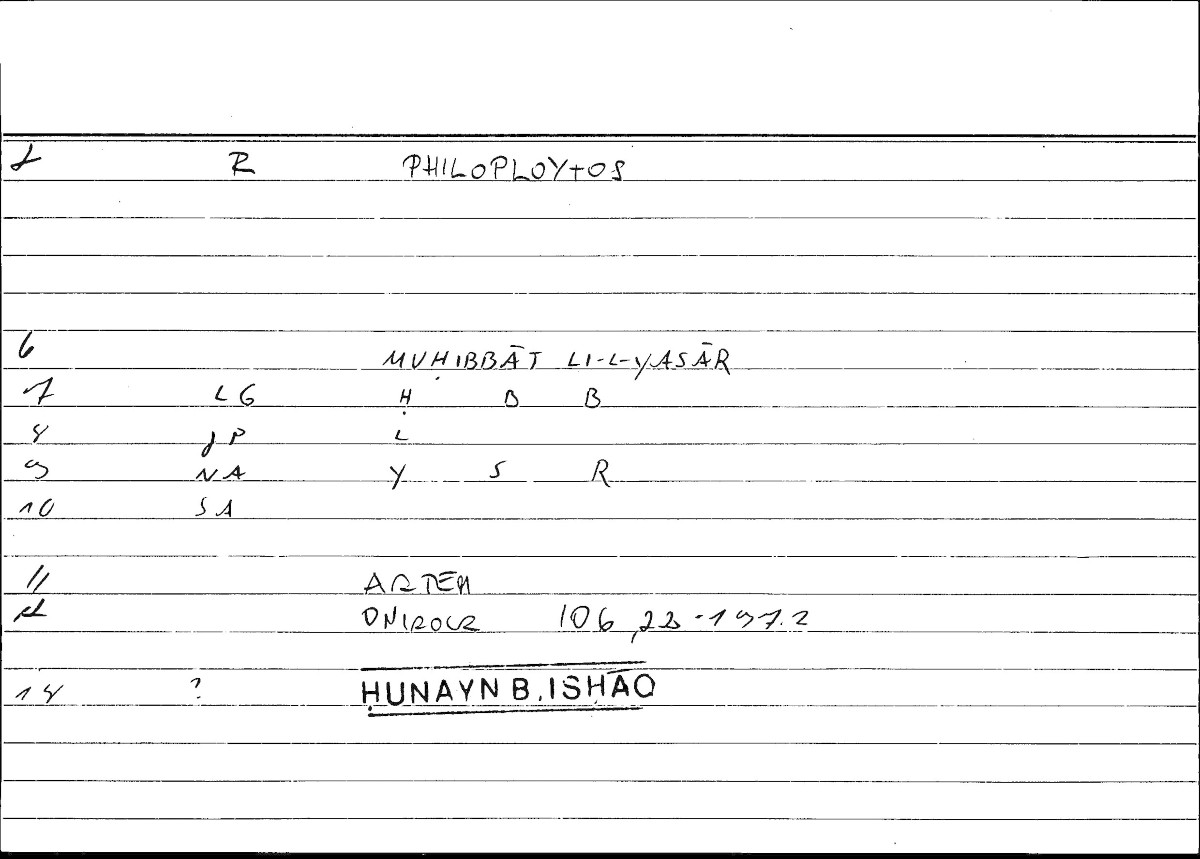 2 R PHILOPLOYTOS
6 MUḤIBBĀT LI-L-YASĀR
7 LG Ḥ B B
8 JP L
9 NA Y S R
10 SA
11 ARTEM
12 ONIROCR 106,22-197.2
14 ? ḤUNAYN B. ISḤĀQ